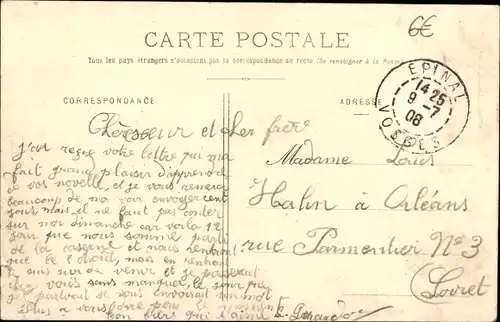 6€
CARTE POSTALE
Tous les pays étrangers n'acceptent pas la correspondance au recto (Se renseigner à la Poste)
CORRESPONDANCE
ADRESSE
EPINAL
14 25
9 - 7
08
VOSGES
Chère sœur et Leu frère
J'ai reçu votre lettre qui m'a
fait grand plaisir d'apprend
de vos novelle, et je vous remerci
beaucoup de ma voir envoyer cent
sous, mais il ne faut pas conter
sur moi dimanche car voila 12
jour que nous somme parti
de la caserne et nous rentront
que le
mais en rentrant
je suis sur de venir et je passerait
chez vous sans manquer, le
je partirait je vous enverrait un mot
Plus a vous dire pour le moment
ton frère qui t'aime
Madame Louis
Halin à Orléans
rue Parmentier N° 3
Loiret